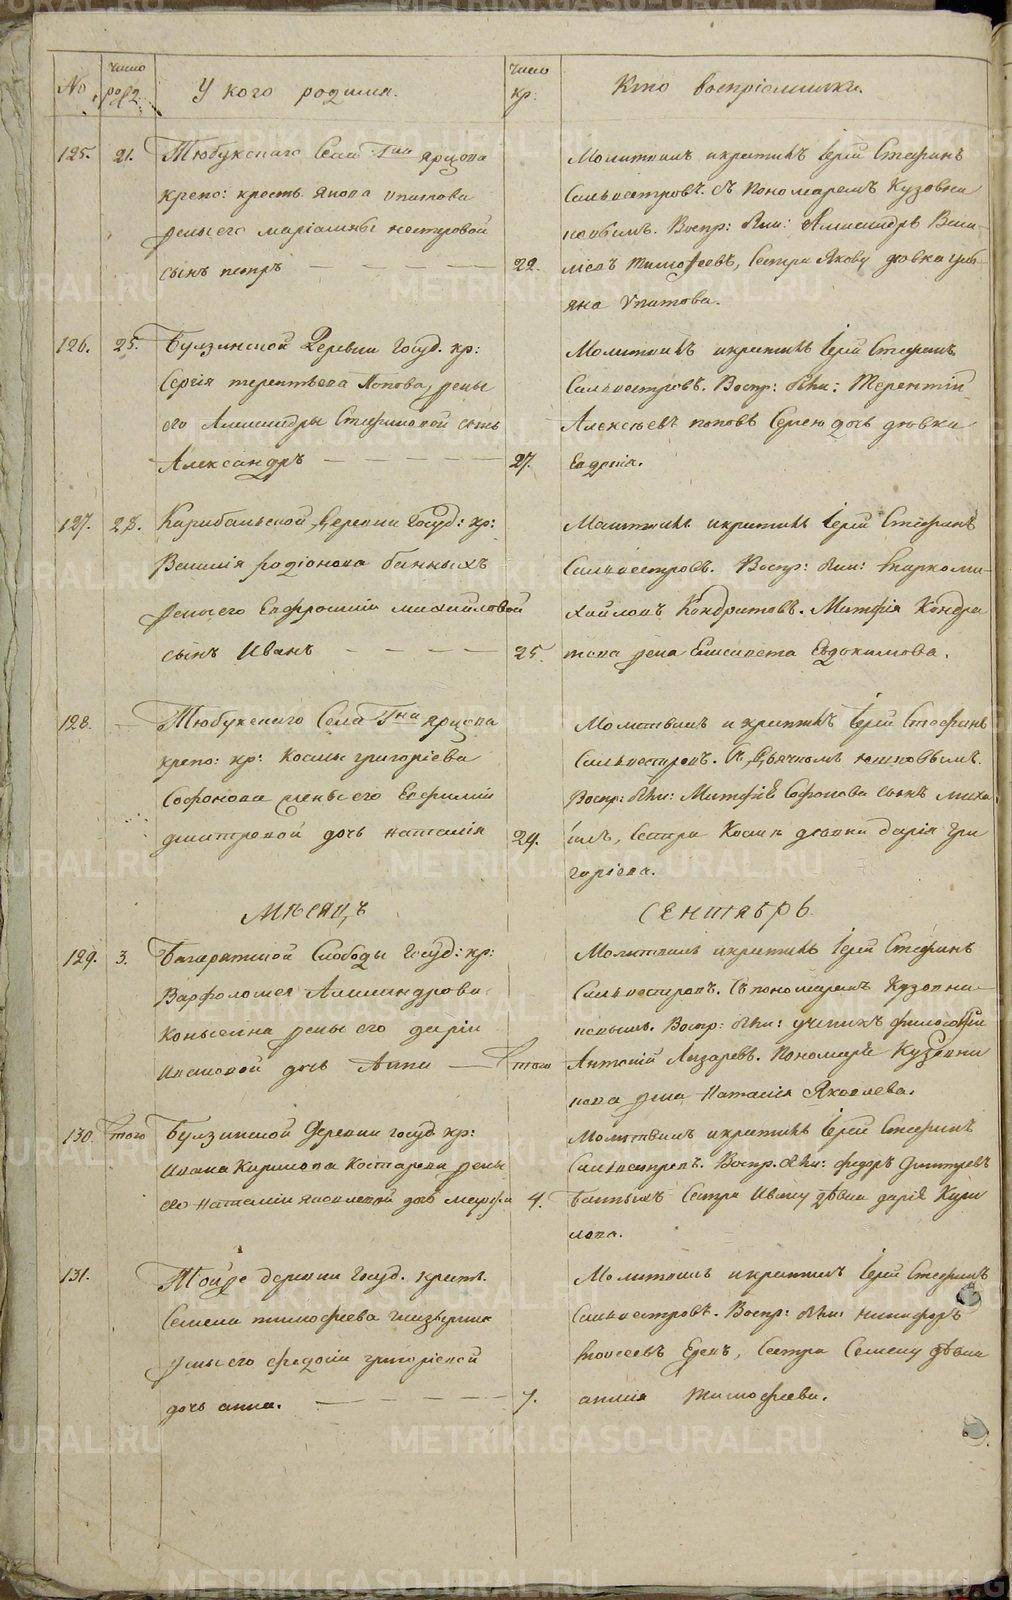 №
число рож.
У кого родился.
число кр.
Кто воспріемники.
125.
21.
Тюбукскаго Села Гна ярцова
крепо: кресть. якова ипатова
жены его маріамны нестеровой
сынъ петръ
22.
Молитвилъ икрестилъ Іерей Стефанъ
Сильвестровъ. Съ Пономаремъ Кузовни-
ковымъ. Воспр: были: Александръ Васи-
льевъ Тимофеевъ, Сестра Якову девка
Ипатова.
126.
25.
Булзинской Деревни Госуд. кр:
Сергія терентьева Попова, жены
его Александры Стефановой сынъ
Александръ
27.
Молитвилъ икрестилъ Іерей Стефанъ
Сильвестровъ. Воспр: были: Терентій
Алексѣевъ поповъ Сергею дочь девка
127.
23.
Карабальской Деревни Госуд: кр:
Василія родіонова банныхъ
жены его Евфросиніи михайловой
сынъ Иванъ
25.
Молитвилъ икрестилъ Іерей Стефанъ
Сильвестровъ. Воспр: были:
хайловъ Кондратовъ. Матфія Кондра
това жена Елисавета Евдокимова.
128.
Тюбукскаго Села Гна ярцова
крепо: кр: Космы григоріева
Софонова жены его Евфиміи
дмитревой дочь наталія
24.
Молитвилъ и крестилъ Іерей Стефанъ
Сильвестровъ. Съ Дьячкомъ
Воспр: были: Матфія Софонова сынъ миха
илъ, Сестра Косми девка дарія Гри
горіева.
Мѣсяцъ
Сентябрь.
129.
3.
Багарятской Слободы Госуд: кр:
Варфоломея Александрова
жены его даріи
ивановой дочь Анна
того
Молитвилъ икрестилъ Іерей Стефанъ
Сильвестровъ. Съ пономаремъ Кузовни-
ковымъ. Воспр: были: ученикъ философіи
Антоній Лазаревъ. Пономаря Кузовни
кова жена Наталія Яковлева.
130.
того
Булзинской Деревни госуд кр:
Ивана Кирилова Костарева жены
его Наталіи яковлевой дочь марфа
4.
Молитвилъ икрестилъ Іерей Стефанъ
Сильвестровъ. Воспр. были: федоръ Дмитревъ
банныхъ Сестра Ивану дѣвка дарія Кири
лова.
131.
Тойже деревни Госуд. крест.
Семена тимофеева
жены его федосіи григорьевой
дочь анна.
7.
Молитвилъ икрестилъ Іерей Стефанъ
Сильвестровъ. Воспр: были: никифоръ
Моисеевъ, Сестра Семену дѣвка
Тимофеева.